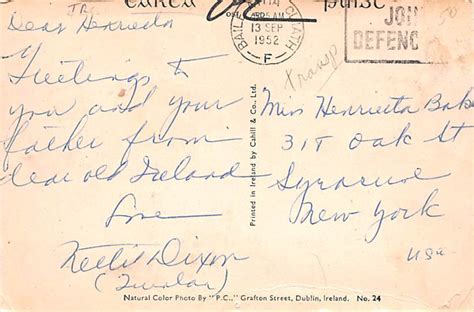 Dear Henrieta
Greetings to
you and your
father from
dear old Ireland
Love
Dixon
cárta
13 SEP
1952
F
JOIN
DEFENC
Miss Henrietta Bak
317 Oak St
Syracuse
New York
USA
Printed in Ireland by Cahill & Co. Ltd.
Natural Color Photo By "P.C.," Grafton Street, Dublin, Ireland. No. 24